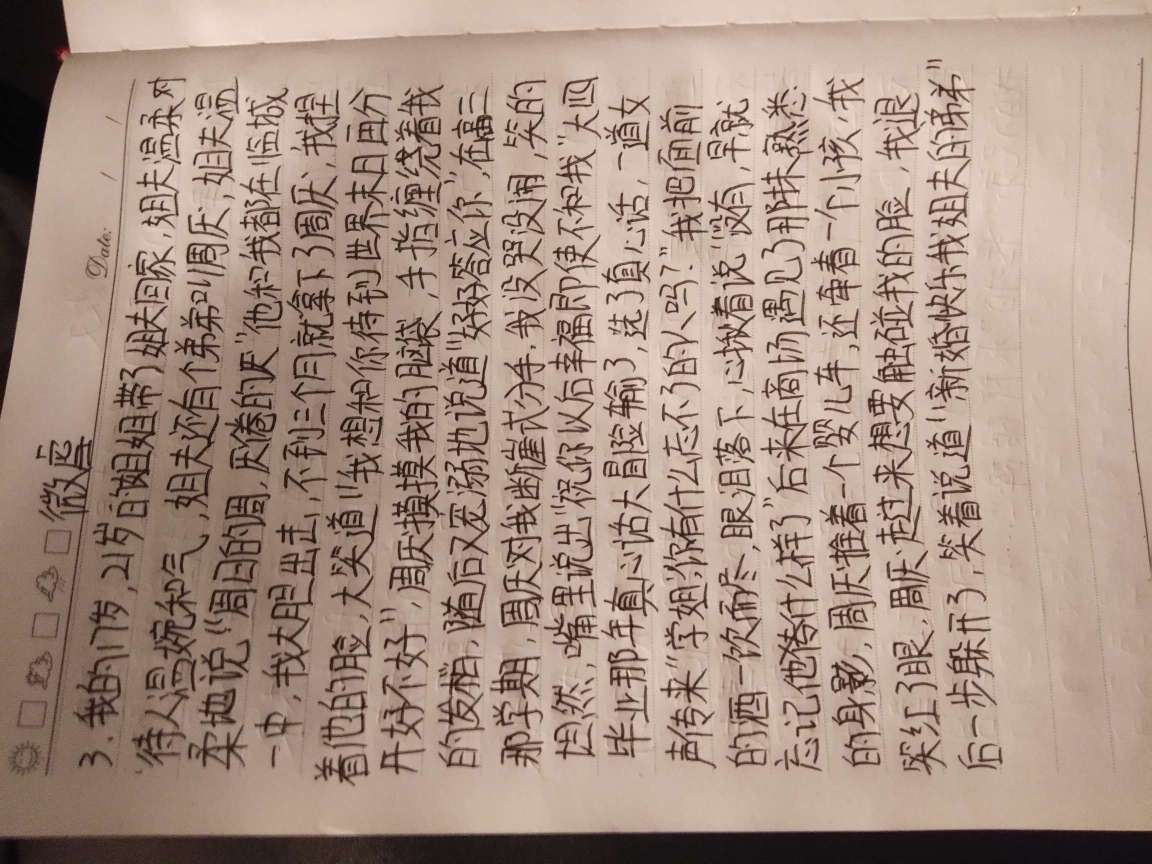 微寵
Date: / /
3.我的17岁,21岁的姐姐带了姐夫回家,姐夫温柔对
待人温婉和气,姐夫还有个弟弟叫周厌,姐夫温
柔地说“周日的周,厌倦的厌”他和我都在临城
一中,我大胆出击,不到三个月就拿下了周厌,我捏
着他的脸,大笑道“我想和你待到世界末日再分
开好不好”,周厌摸摸我的脑袋,手指缠绕着我
的发梢,随后又宠溺地说道“好好答应你”,在高三
那学期,周厌对我断崖式分手,我没哭没闹,笑的
坦然,嘴里说出“祝你以后幸福即使不和我”大四
毕业那年真心话大冒险输了,选了真心话,一道女
声传来“学姐,你有什么忘不了的人吗?”我把面前
的酒一饮而尽,眼泪落下,心揪着说“没有,早就
忘记他修什么样了”后来在商场遇见了那抹熟悉
的身影,周厌推着一个婴儿车,还牵着一个小孩,我
笑红了眼,周厌走过来想要触碰我的脸,我退
后一步躲开了,笑着说道“新婚快乐我姐夫的弟弟”